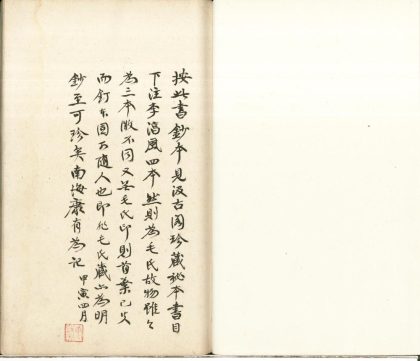 按此書鈔本見汲古閣珍藏秘本書目
下注李淳風四本然則為毛氏故物雖今
為三本微不同又無毛氏印則首葉已失
而釘本固可隨人也即非毛氏藏亦為明
鈔至可珍矣南海康有為記 甲寅四月